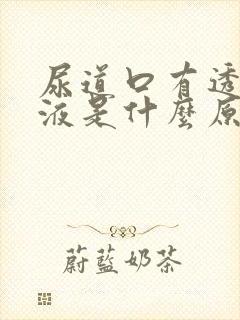 尿道口有透
液是什麼原
蔚藍奶茶